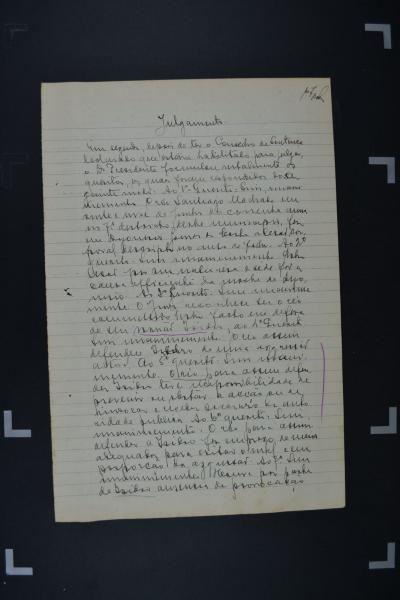 Julgamento
Em seguida, depois de ter o Conselho de Sentença
declarado que estava habilitado para julgar,
o Dr. Presidente formulou verbalmente os
quesitos, os quaes foram respondidos do se-
guinte modo: Ao 1º quesito: Sim, unani-
memente. O réo Santiago Machado em
vinte e nove de Junho do corrente anno
no 7º districto deste municipio, fez
em
poral, descripta no auto de fls. Ao 2º
quesito: Sim unanimemente. Esta
lesão foi em sua
causa efficiente da morte de
Ao 3º quesito: Sim unanime-
mente. O Jury reconhece ser o réo
commettido este facto em defesa
de seu irmão Isidro, ao 4º quesito
Sim unanimemente. O réo assim
defendeu Isidro de uma aggressão
actual. Ao 5º quesito: Sim unani-
memente. O réo para assim defen-
der Isidro teve impossibilidade de
prevenir ou obstar a acção ou de
invocar e receber soccorro da auto-
ridade publica. Ao 6º quesito: Sim,
unanimemente. O réo para assim
defender a Isidro fez emprego de meios
adequados para evitar o mal e em
proporção da aggressão. Ao 7º Sim
unanimemente. Houve por parte
de Isidro ausencia de provocação